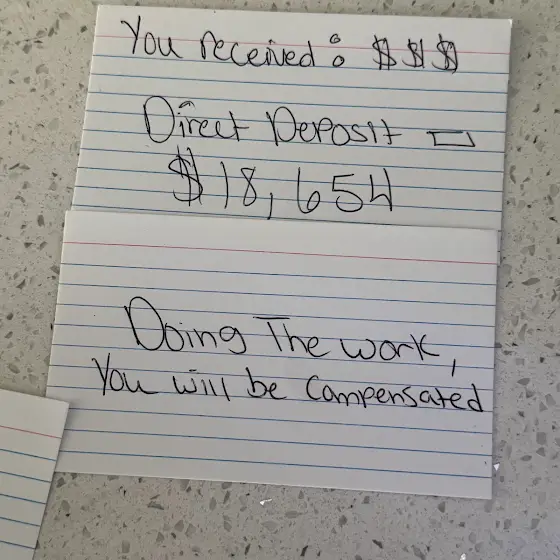 You received: $$$
Direct Deposit
$18,654
Doing The work,
You will be Compensated